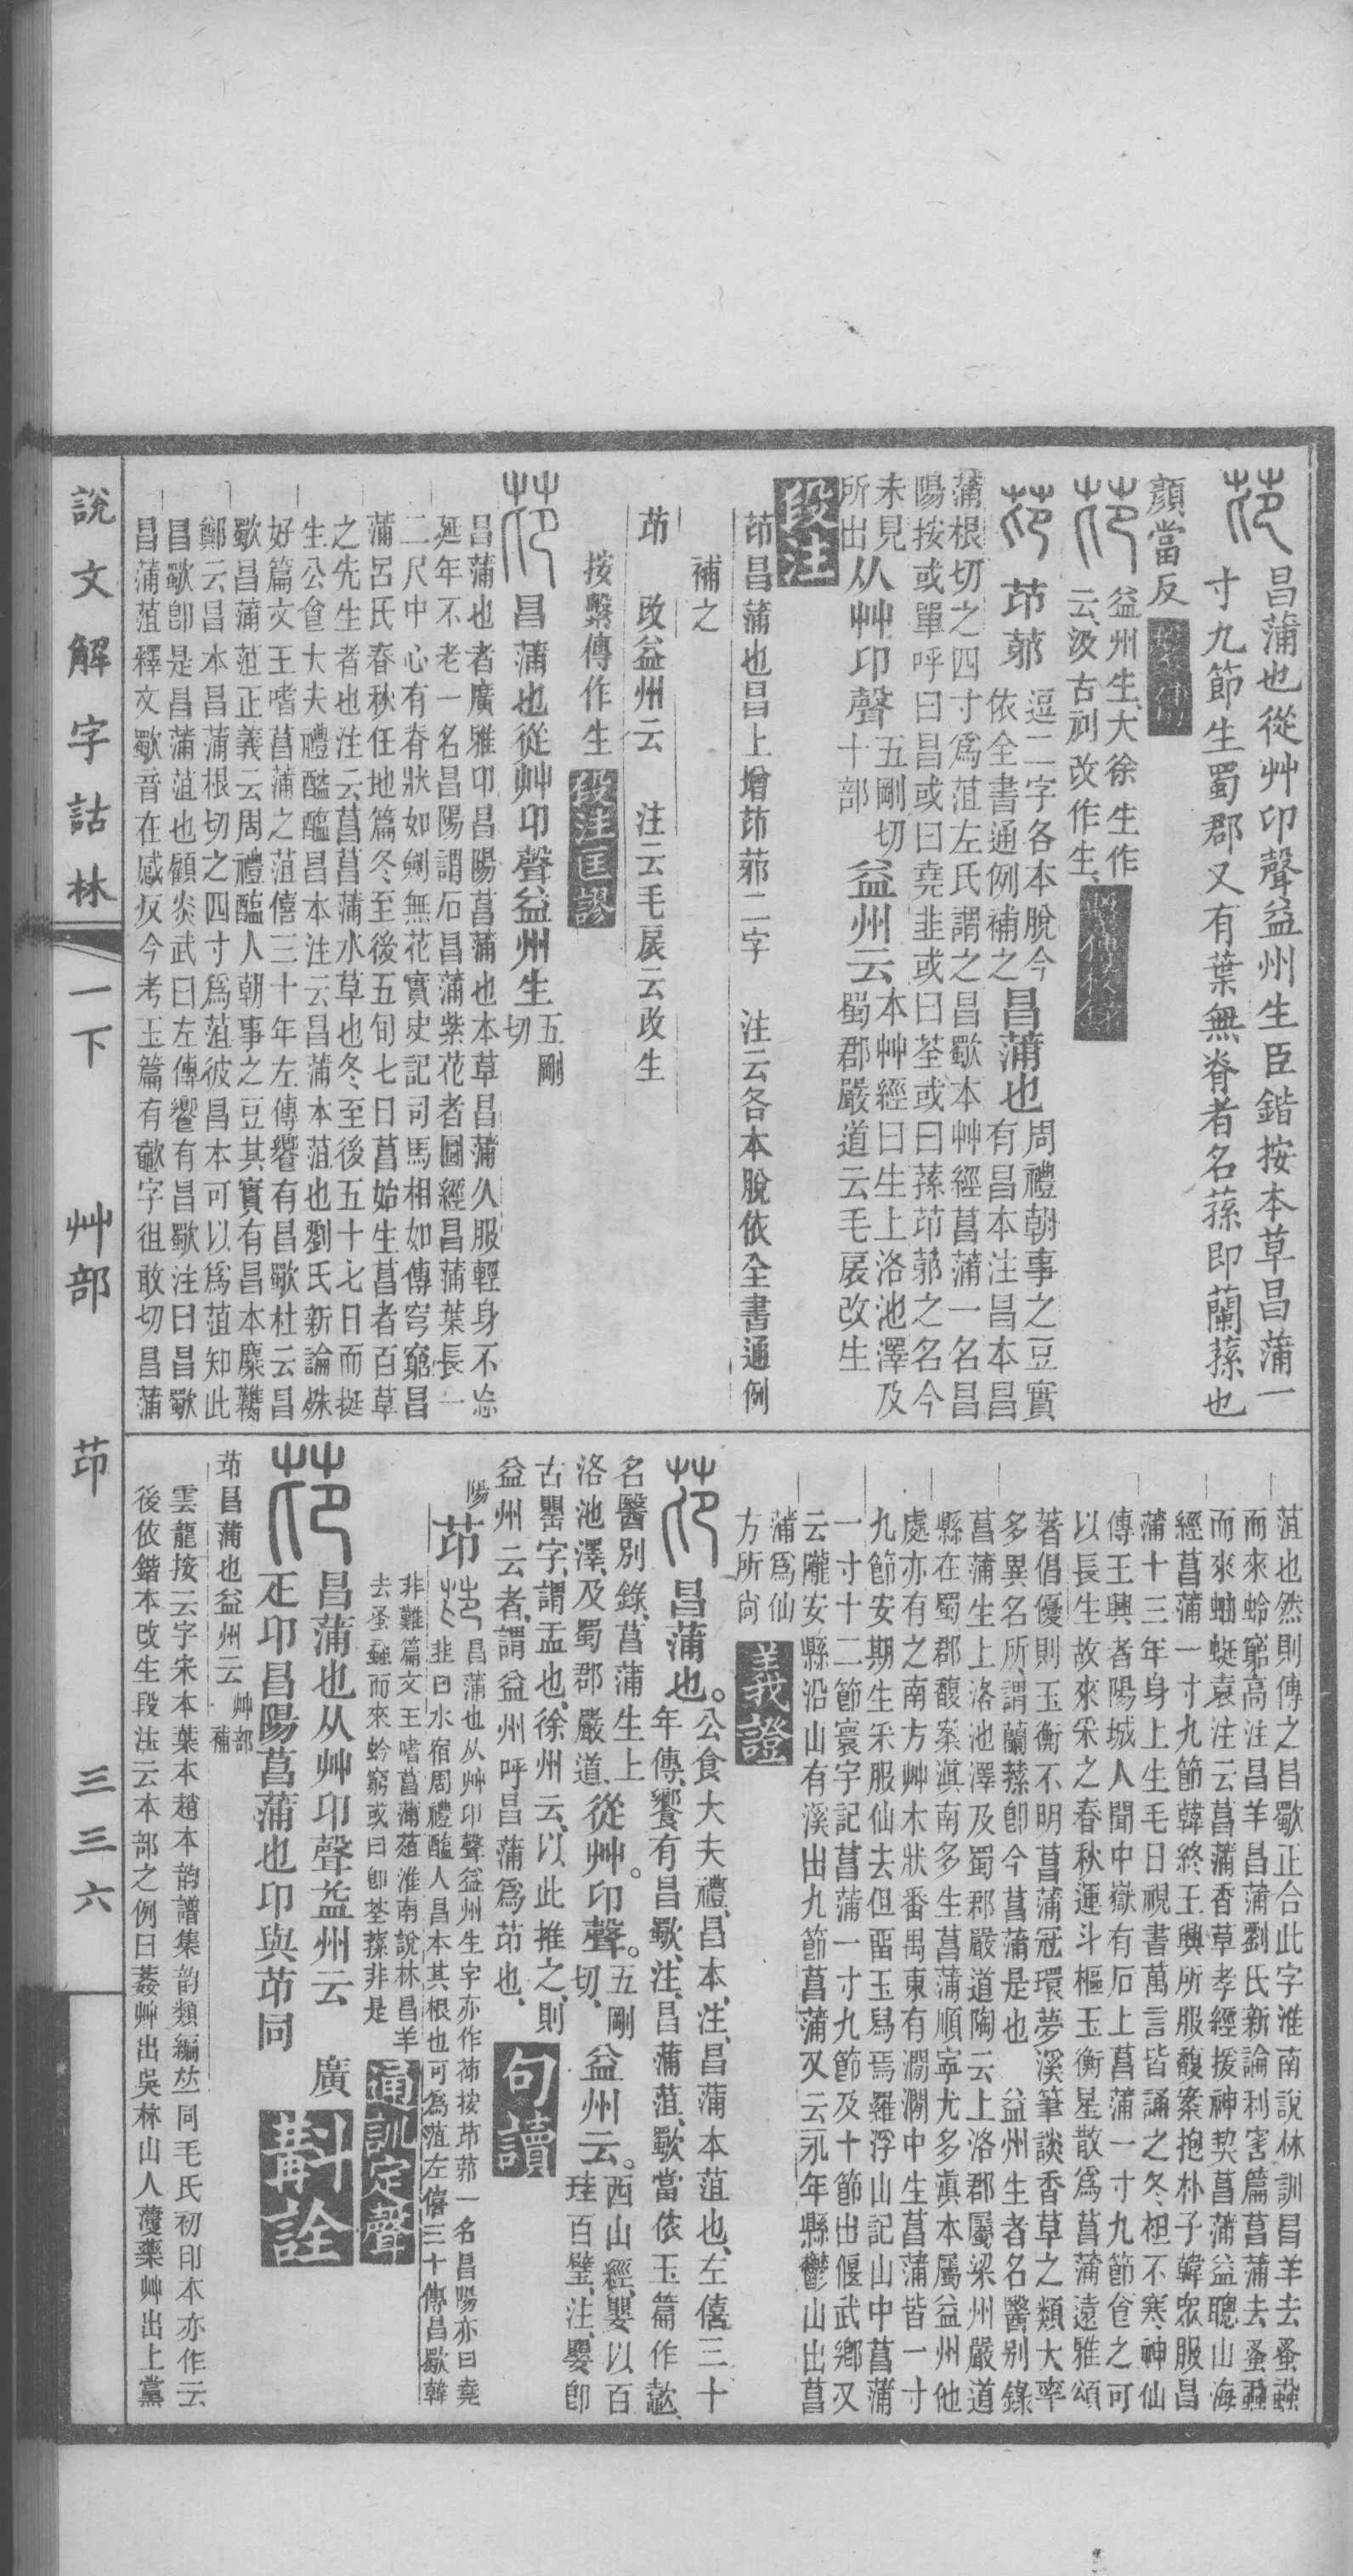 昌蒲也從艸卬聲益州生臣鍇按本草昌蒲一
寸九節生蜀郡又有葉無脊者名蓀即蘭蓀也
顏當反 繫傳
益州生大徐生作
云汲古刓改作生 繫傳校錄
茚 茚䓲 逗二字各本脫今
依全書通例補之 昌蒲也 周禮朝事之豆實
有昌本注昌本昌
蒲根切之四寸爲菹左氏謂之昌歜本艸經菖蒲一名昌
陽按或單呼曰昌或曰堯韭或曰荃或曰蓀茚䓲之名今
未見 从艸卬聲 五剛切
十部 益州云 本艸經曰生上洛池澤及
蜀郡嚴道云毛扆改生
所出
段注
茚昌蒲也昌上增茚䓲二字 注云各本脫依全書通例
補之
茚 改益州云 注云毛扆云改生
按繫傳作生 段注匡謬
茚 昌蒲也從艸卬聲益州生 五剛
切
昌蒲也者廣雅卬昌陽菖蒲也本草昌蒲久服輕身不忘
延年不老一名昌陽謂石昌蒲紫花者圖經昌蒲葉長一
二尺中心有脊狀如劍無花實史記司馬相如傳穹窮昌
蒲呂氏春秋任地篇冬至後五旬七日菖始生菖者百草
之先生者也注云菖菖蒲水草也冬至後五十七日而挺
生公食大夫禮醓醢昌本注云昌蒲本菹也劉氏新論殊
好篇文王嗜菖蒲之菹僖三十年左傳饗有昌歜杜云昌
歜昌蒲菹正義云周禮醢人朝事之豆其實有昌本麋臡
鄭云昌本昌蒲根切之四寸爲菹彼昌本可以爲菹知此
昌歜卽是昌蒲菹也顧炎武曰左傳饗有昌歜注曰昌歜
昌蒲菹釋文歜音在感反今考玉篇有歜字徂敢切昌蒲
菹也然則傳之昌歜正合此字淮南說林訓昌羊去蚤蝨
而來蛉窮高注昌羊昌蒲劉氏新論利害篇菖蒲去蚤蝨
而來蚰蜒袁注云菖蒲香草孝經援神契菖蒲益聰山海
經菖蒲一寸九節韓終王興所服馥案抱朴子韓衆服昌
蒲十三年身上生毛日視書萬言皆誦之冬袒不寒神仙
傳王興者陽城人聞中嶽有石上菖蒲一寸九節食之可
以長生故來采之春秋運斗樞玉衡星散爲菖蒲遠雅頌
著倡優則玉衡不明菖蒲冠環夢溪筆談香草之類大率
多異名所謂蘭蓀卽今菖蒲是也 益州生者名醫別錄
菖蒲生上洛池澤及蜀郡嚴道陶云上洛郡屬梁州嚴道
縣在蜀郡馥案滇南多生菖蒲順寧尤多滇本屬益州他
處亦有之南方艸木狀番禺東有澗澗中生菖蒲皆一寸
九節安期生采服仙去但畱玉舄焉羅浮山記山中菖蒲
一寸十二節寰宇記菖蒲一寸九節及十節出偃武鄉又
云隴安縣沿山有溪出九節菖蒲又云永年縣鬱山出菖
蒲爲仙
方所尚
義證
茚 昌蒲也。公食大夫禮、昌本、注、昌蒲本菹也、左僖三十
年傳、饗有昌歜、注、昌蒲菹、歜當依玉篇作歜、
名醫別錄、菖蒲生上
洛池澤、及蜀郡嚴道、從艸。卬聲。五剛
切、益州云。西山經、嬰以百
珪百璧、注、嬰卽
古罌字、謂盂也、徐州云、以此推之、則
益州云者、謂益州呼昌蒲爲茚也、 句讀
茚 昌蒲也从艸卬聲益州生字亦作䓲按茚䓲一名昌陽亦曰堯
韭曰水宿周禮醢人昌本其根也可爲菹左僖三十傳昌歜韓
非難篇文王嗜菖蒲菹淮南說林昌羊
去蚤蝨而來蚙窮或曰卽荃蓀非是 通訓定聲
茚 昌蒲也从艸卬聲益州云 廣
疋卬昌陽菖蒲也卬與茚同 斠詮
茚昌蒲也益州云 艸部
補
雲龍按云字宋本葉本趙本韵譜集韵類編竝同毛氏初印本亦作云
後依鍇本改生段注云本部之例曰葌艸出吳林山人薓藥艸出上黨
說文解字詁林 一下 艸部 茚 三三六